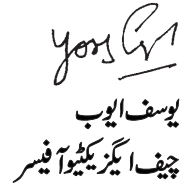 یوسف ایوب
چیف ایگزیکٹیو آفیسر